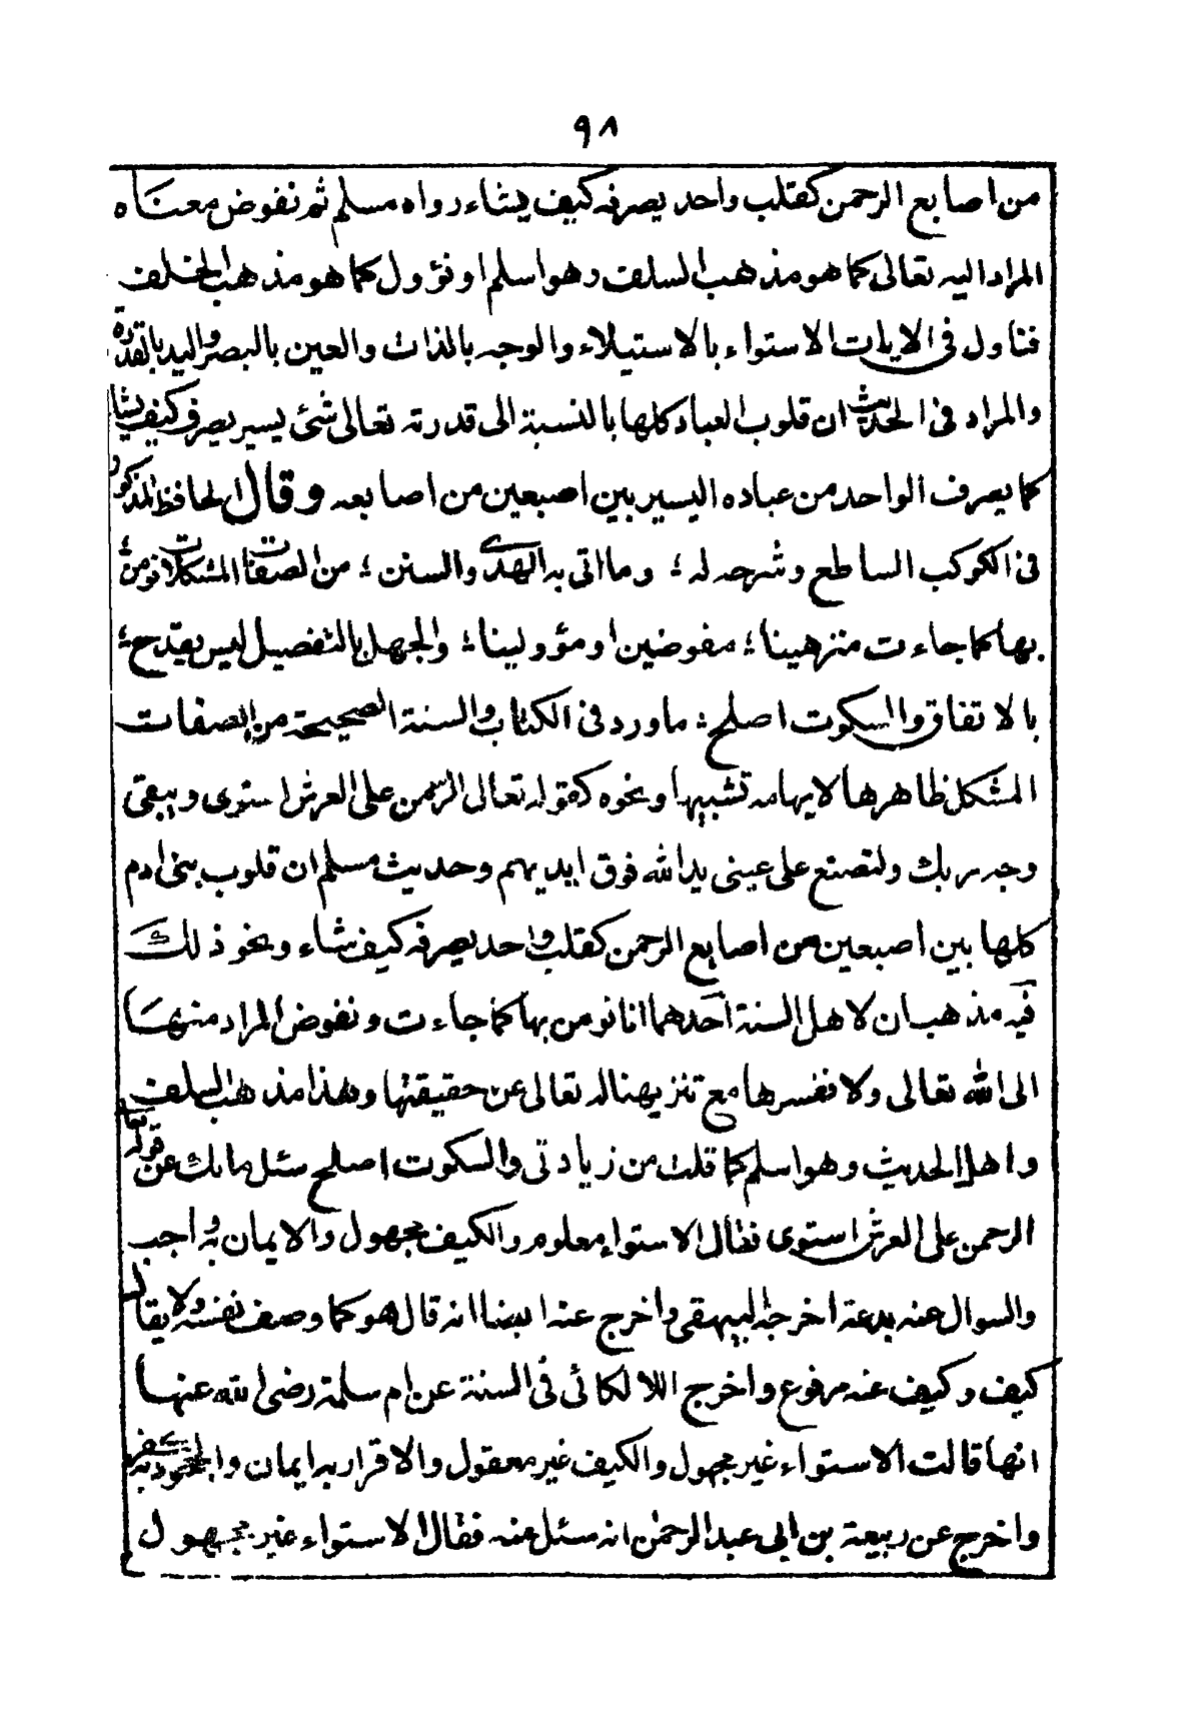 ٩٨
من اصابع الرحمن كقلب واحد يصرفه كيف يشاء رواه مسلم ثم نفوض معناه
المراد اليه تعالى كما هو مذهب السلف وهو اسلم او نؤول كما هو مذهب الخلف
فتاول فى الايات الاستواء بالاستيلاء والوجه بالذات والعين بالبصر واليد بالقدرة
والمراد فى الحديث ان قلوب العباد كلها بالنسبة الى قدرته تعالى شئ يسير يصرف كيف يشا
كما يصرف الواحد من عباده اليسير بين اصبعين من اصابعه وقال الحافظ المذكور
فى الكوكب الساطع وشرحه له ؛ وما اتى به الهدى والسنن ؛ من الصفات المشكلات نومن ؛
بها كما جاءت منزهينا ؛ مفوضين او مؤولينا ؛ والجهل بالتفصيل ليس يقدح ؛
بالاتفاق والسكوت اصلح ؛ ما ورد فى الكتاب والسنة الصحيحة من الصفات
المشكل ظاهرها لايهامه تشبيها ونحوه كقوله تعالى الرحمن على العرش استوى ويبقى
وجه ربك ولتصنع على عينى يد الله فوق ايديهم وحديث مسلم ان قلوب بنى ادم
كلها بين اصبعين من اصابع الرحمن كقلب واحد يصرفه كيف شاء ونحو ذلك
فيه مذهبان لاهل السنة احدهما انا نومن بها كما جاءت ونفوض المراد منها
الى الله تعالى ولا نفسرها مع تنزيهنا له تعالى عن حقيقتها وهذا مذهب السلف
واهل الحديث وهو اسلم كما قلت من زيادتى والسكوت اصلح سئل مالك عن قوله تعا
الرحمن على العرش استوى فقال الاستواء معلوم والكيف مجهول والايمان به واجب
والسوال عنه بدعة اخرجه البيهقى واخرج عنه ايضا انه قال هو كما وصف نفسه ولا يقال
كيف وكيف عنه مرفوع واخرج اللالكائى فى السنة عن ام سلمة رضى الله عنها
انها قالت الاستواء غير مجهول والكيف غير معقول والاقرار به ايمان والجحود به كفر
واخرج عن ربيعة بن ابى عبد الرحمن انه سئل عنه فقال الاستواء غير مجهول